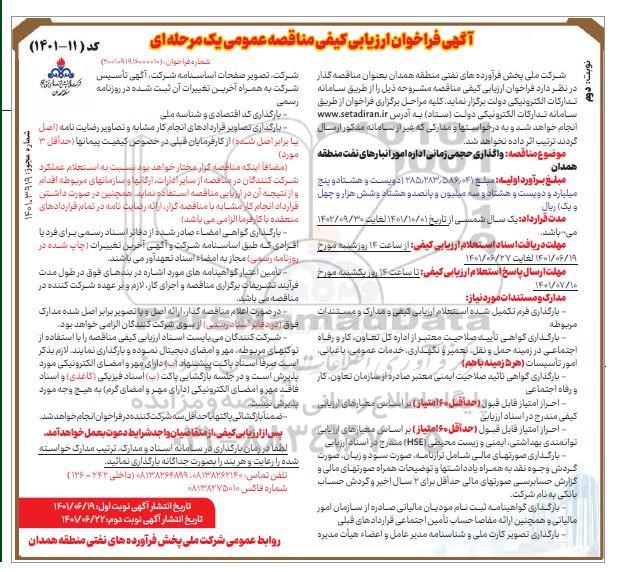 آگهی فراخوان ارزیابی کیفی مناقصه عمومی یک مرحله ای
کد (۱۱-۱۴۰۱)
شماره فراخوان: (۲۰۰۱۰۹۱۹۱۶۰۰۰۰۱۰)
نوبت: دوم
شماره مجوز ۱۴۰۱.۳۹۱۹
شرکت ملی پخش فرآورده های نفتی منطقه همدان بعنوان مناقصه گذار
در نظر دارد فراخوان ارزیابی کیفی مناقصه مشروحه ذیل را از طریق سامانه
تدارکات الکترونیکی دولت برگزار نماید. کلیه مراحل برگزاری فراخوان از طریق
سامانه تدارکات الکترونیکی دولت (ستاد) به آدرس www.setadiran.ir
انجام خواهد شد و به درخواستها و مدارکی که غیر از سامانه مذکور ارسال
گردند ترتیب اثر داده نخواهد شد.
موضوع مناقصه: واگذاری حجمی زمانی اداره امور انبارهای نفت منطقه
همدان
مبلغ برآورد اولیه: مبلغ (۲۸۵,۲۸۳,۵۸۶,۰۴۱) (دویست و هشتاد و پنج
میلیارد و دویست و هشتاد و سه میلیون و پانصد و هشتاد وشش هزار و چهل
و یک) ریال
مدت قرارداد: یک سال شمسی از تاریخ ۱۴۰۱/۱۰/۰۱ لغایت ۱۴۰۲/۰۹/۳۰
می-باشد.
مهلت دریافت اسناد استعلام ارزیابی کیفی: از ساعت ۱۴ روز شنبه مورخ
۱۴۰۱/۰۶/۱۹ لغایت ۱۴۰۱/۰۶/۲۷
مهلت ارسال پاسخ استعلام ارزیابی کیفی: تا ساعت ۱۴ روز یکشنبه مورخ
۱۴۰۱/۰۷/۱۰
مدارک و مستندات مورد نیاز:
- بارگذاری فرم تکمیل شده استعلام ارزیابی کیفی و مدارک و مستندات
مربوطه
- بارگذاری گواهی تأییـد صلاحیت معتبـر از اداره کل تعاون، کار و رفـاه
اجتماعی در زمینه حمل و نقل، تعمیر و نگهداری، خدمات عمومی، باغبانی،
امور تأسیسات (هر ۵ زمینه با هم)
- بارگذاری گواهی تائید صلاحیت ایمنی معتبر صادره از سازمان تعاون، کار
و رفاه اجتماعی
- احراز امتیاز قابل قبول (حداقل ۶۰ امتیاز) بر اساس معیارهای ارزیابی
کیفی مندرج در اسناد ارزیابی
- احراز امتیاز قابل قبول (حداقل ۶۰ امتیاز) بر اساس معیارهای ارزیابی
توانمندی بهداشتی، ایمنی و زیست محیطی (HSE) مندرج در اسناد ارزیابی
- بارگذاری صورتهای مالـی شامل ترازنامـه، صورت سـود و زیان، صورت
گردش وجوه نقد به همراه یادداشتها و توضیحات همراه صورتهای مالی و
گزارش حسابرسی صورتهای مالی حداقل برای ۲ سال اخیر و گردش حساب
بانکی به نام شرکت.
- بارگذاری گواهینامـه ثبت نـام مودیـان مالیاتی صادره از سازمان امور
مالیاتی و همچنین ارائه مفاصا حساب تأمین اجتماعی قراردادهای قبلی
- بارگذاری تصویر کارت ملی و شناسنامه مدیر عامل و اعضاء هیأت مدیره
شرکت، تصویر صفحات اساسنامـه شرکت، آگهی تأسیس
شرکت به همراه آخرین تغییرات آن ثبت شده در روزنامه
رسمی
- بارگذاری کد اقتصادی و شناسه ملی
- بارگذاری تصاویر قراردادهای انجام کار مشابه و تصاویر رضایت نامه (اصل
یا برابر اصل شده) از کارفرمایان قبلی در خصوص کیفیت پیمانها (حداقل ۳
مورد)
(مضافا اینکه مناقصه گزار مختار خواهد بود نسبت به استعلام عملکرد
شرکت کنندگان در مناقصه از سایر ادارات، ارگانها و سازمانهای مربوطه اقدام
و از نتیجـه آن در ارزیابی مناقصه استفاده نماید. همچنین در صورت داشتن
قرارداد انجام کار مشابه با مناقصه گزار، ارائه رضایت نامه در تمام قراردادهای
منعقده با کارفرما الزامی می باشد)
- بارگـذاری گواهـی امضـاء صادر شـده از دفاتـر اسنـاد رسمـی بـرای فرد یا
افـرادی کـه طبق اساسنـامه شرکت و آگهـی آخریـن تغییـرات (چاپ شـده در
روزنامه رسمی) مجاز به امضاء اسناد تعهدآور می باشند.
- تأمین اعتبار گواهینامه های مورد اشاره در بندهـای فوق در طول مدت
فرآیند تشریفات برگزاری مناقصه و اجرای کار، لازم و بر عهده شرکت کننده در
مناقصه می باشد.
- در صورت اعلام مناقصه گذار، ارائه اصل و یا تصویر برابر اصل شده مدارک
فوق (در دفاتر اسناد رسمی) از سوی شرکت کنندگان الزامی خواهد بود.
- شرکت کنندگان می بایست اسناد ارزیابی کیفی مناقصه را با استفاده از
توکنهای مربوطه، مهر و امضای دیجیتال نموده و بارگذاری نمایند. لازم بذکر
است صرفا اسناد پاکت پیشنهاد (ب) دارای مهر و امضای الکترونیکی مورد
پذیرش است و در جلسه بازگشایی پاکت (ب) اسناد فیزیکی (کاغذی) و اسناد
فاقد مهر و امضای الکترونیکی (دارای مهر و امضای گرم) به هیچ وجه مورد
پذیرش نیست.
ضمنا بازگشائی پاکتها با حداقل سه شرکت کننده در فراخوان انجام خواهد شد.
پس از ارزیابی کیفی، از متقاضیان واجد شرایط دعوت بعمل خواهد آمد.
لطفا در زمان بارگذاری در سامانه اسناد و مدارک، ترتیب مدارک خواسته
شده را رعایت و هر بند را بصورت جداگانه بارگذاری نمائید.
تلفن تماس: ۰۸۱۳۸۲۶۲۱۴۰ . ۰۸۱۳۸۲۶۴۸۹۹ (داخلی ۲۴۲ - ۱۲۶)
شماره فاکس ۰۸۱۳۸۲۷۵۰۱۰
تاریخ انتشار آگهی نوبت اول: ۱۴۰۱/۰۶/۱۹
تاریخ انتشار آگهی نوبت دوم: ۱۴۰۱/۰۶/۲۲
روابط عمومی شرکت ملی پخش فرآورده های نفتی منطقه همدان